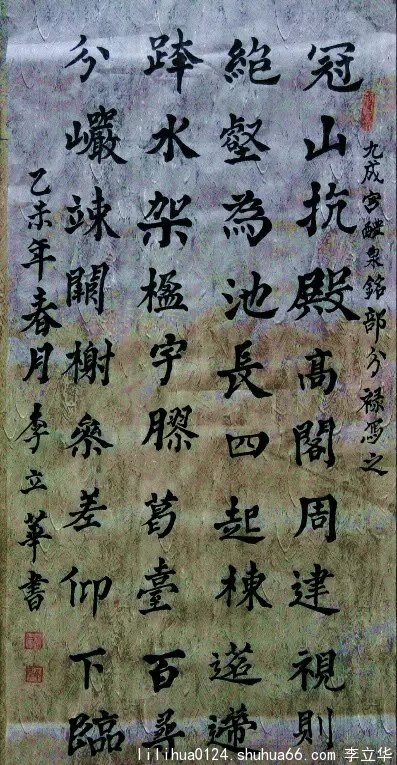 九成宫醴泉銘部分禄写之
冠山抗殿高閣周建視則
絶壑為池長四起棟遰
跨水架楹宇膠葛臺百尋
分巖竦闕榭參差仰下臨
乙未年春月李立華書
lilihua0124.shuhua66.com 李立华